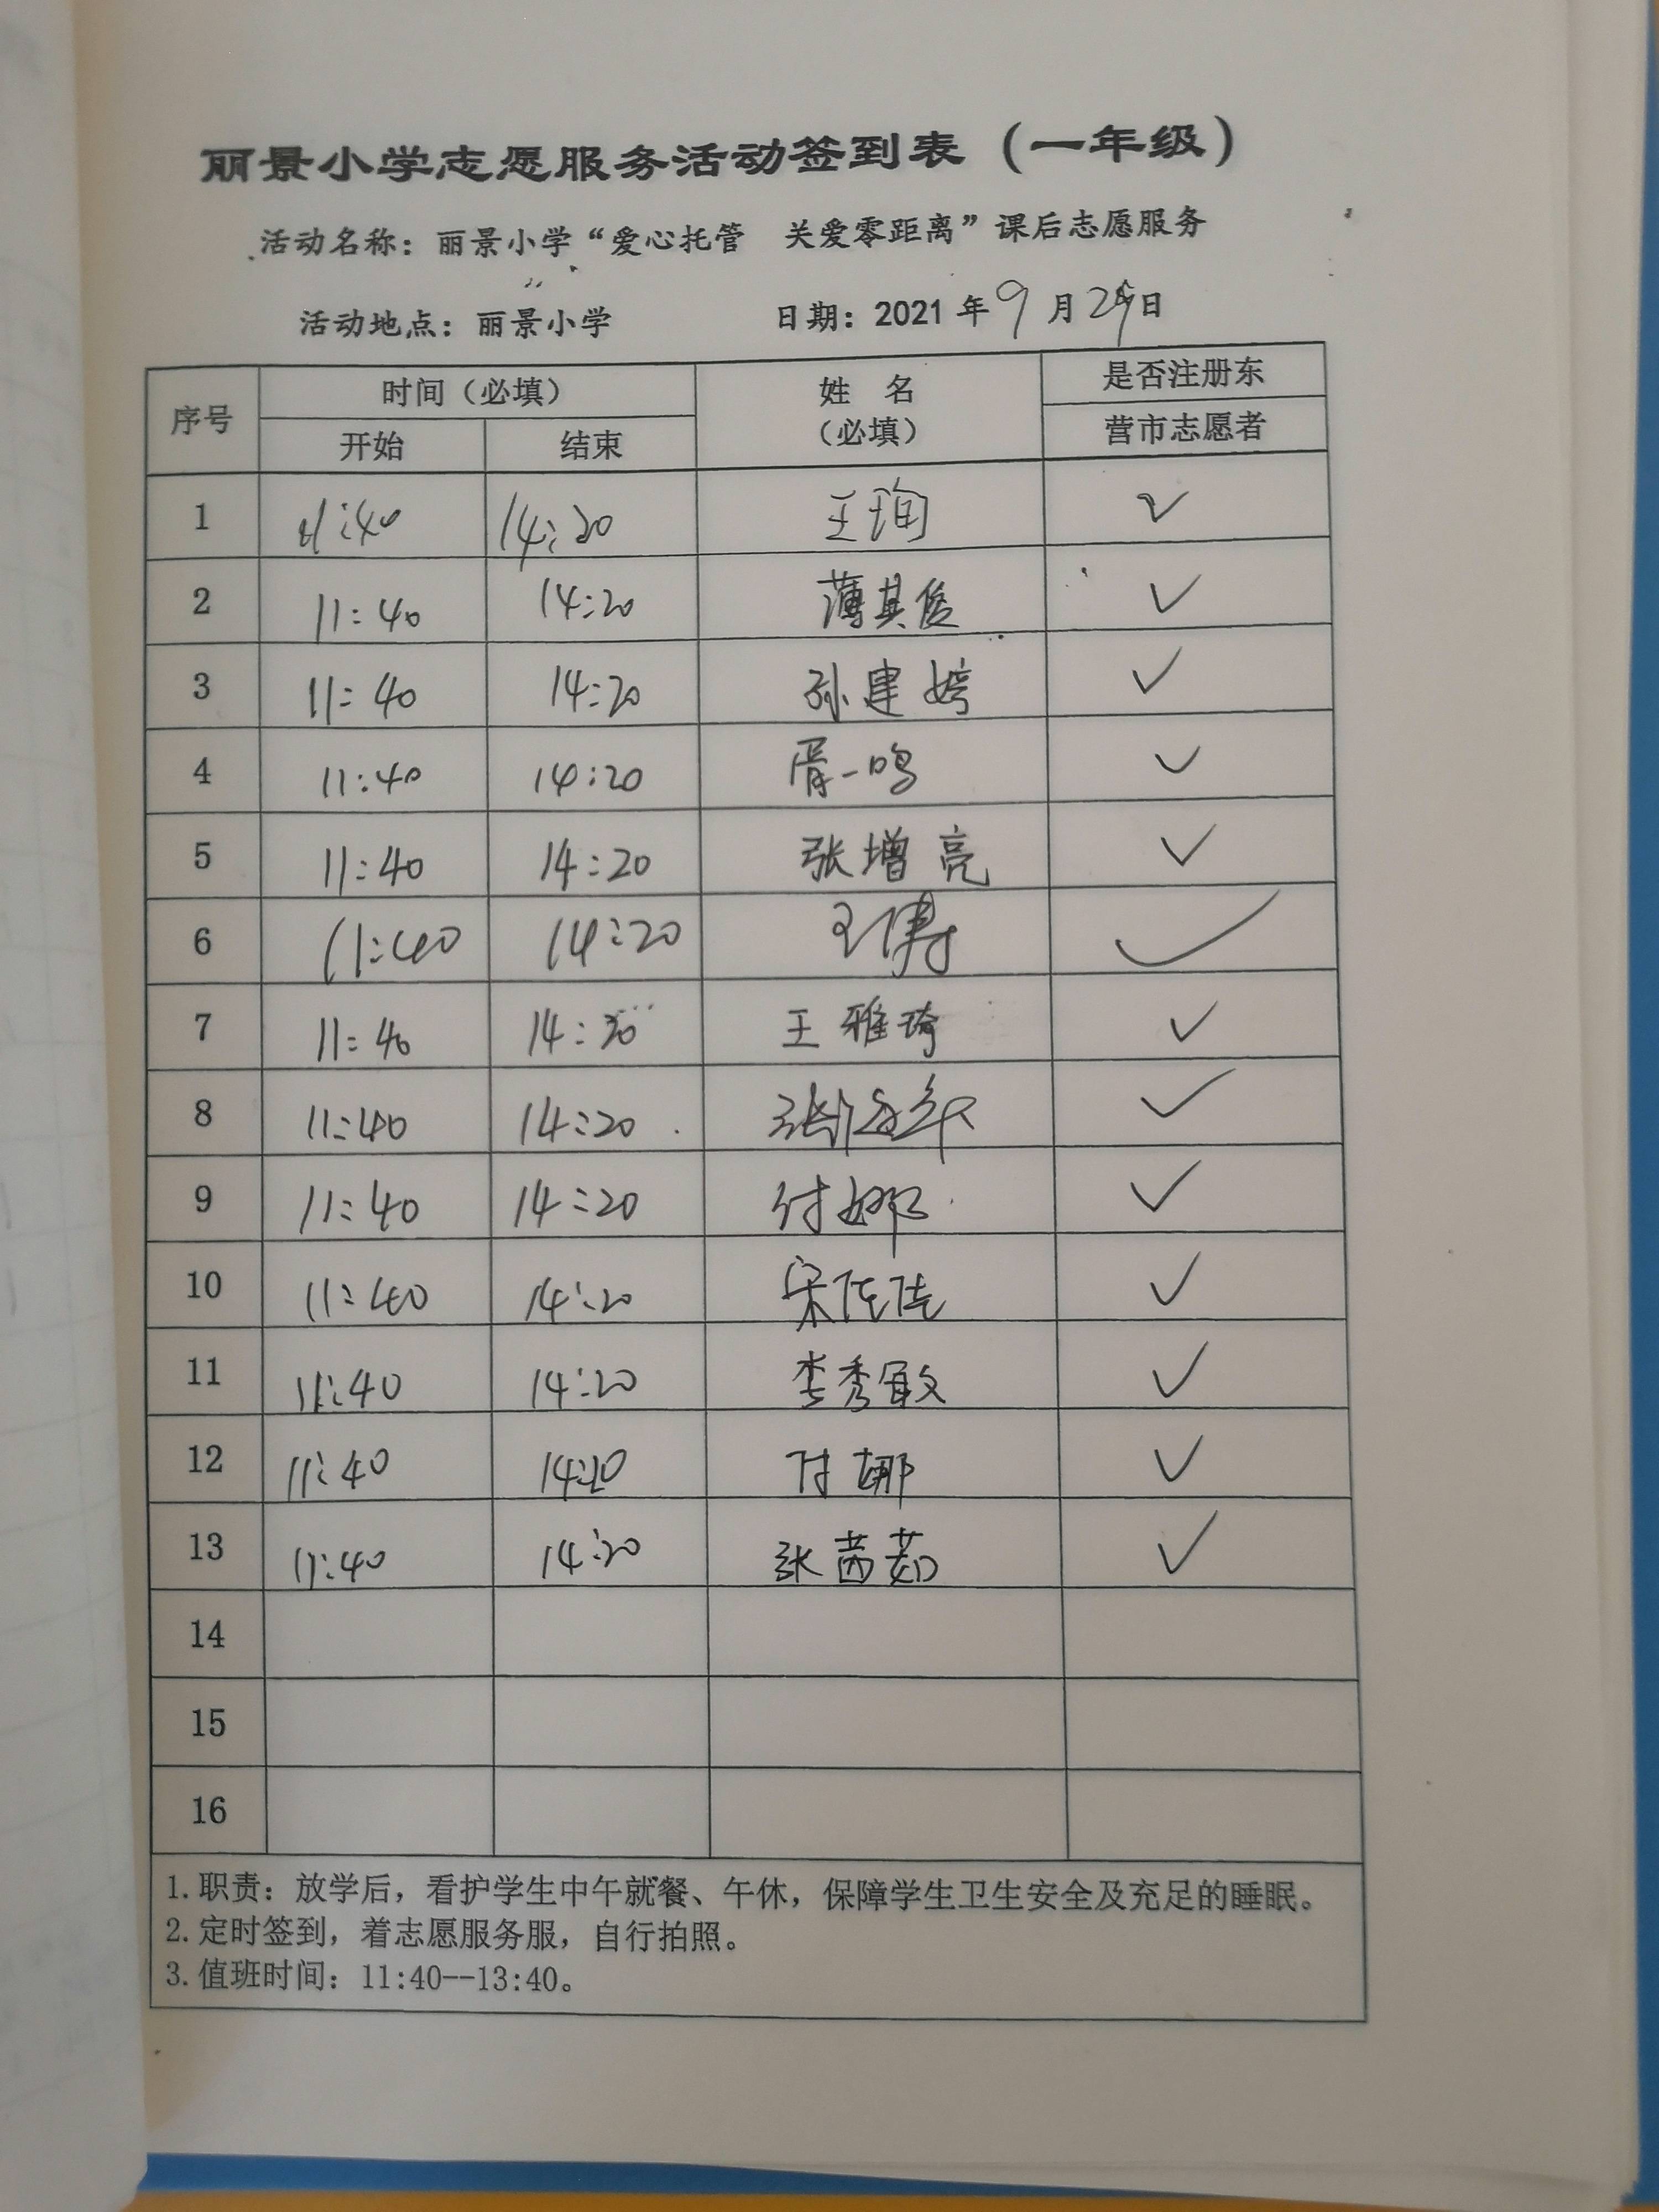 丽景小学志愿服务活动签到表（一年级）
活动名称：丽景小学“爱心托管 关爱零距离”课后志愿服务
活动地点：丽景小学 日期：2021年9月29日
序号 时间（必填） 姓名（必填） 是否注册东营市志愿者
开始 结束
1 11:40 14:20 王珣 ✓
2 11:40 14:20 薄其俊 ✓
3 11:40 14:20 孙建婷 ✓
4 11:40 14:20 胥一鸣 ✓
5 11:40 14:20 张增亮 ✓
6 11:40 14:20 王 ✓
7 11:40 14:20 王雅琦 ✓
8 11:40 14:20 张 ✓
9 11:40 14:20 付娜 ✓
10 11:40 14:20 宋佳佳 ✓
11 11:40 14:20 李秀敏 ✓
12 11:40 14:20 付娜 ✓
13 11:40 14:20 张茜茹 ✓
14
15
16
1.职责：放学后，看护学生中午就餐、午休，保障学生卫生安全及充足的睡眠。
2.定时签到，着志愿服务服，自行拍照。
3.值班时间：11:40--13:40。